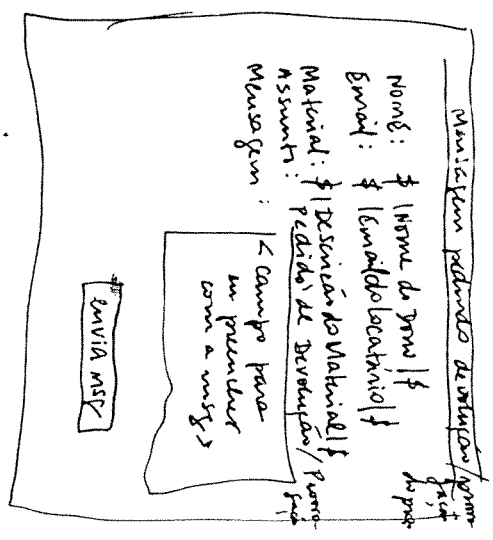 Mensagem pedindo devolução/prorro
gaçã
do prazo
Nome: $ |Nome do Dono|$
Email: $ |Email do Locatário|$
Material: $ |Descrição do Material|$
Assunto: Pedido de Devolução/Prorro
gaçã
Mensagem:
< campo para
ser preencher
com a msg >
envia msg